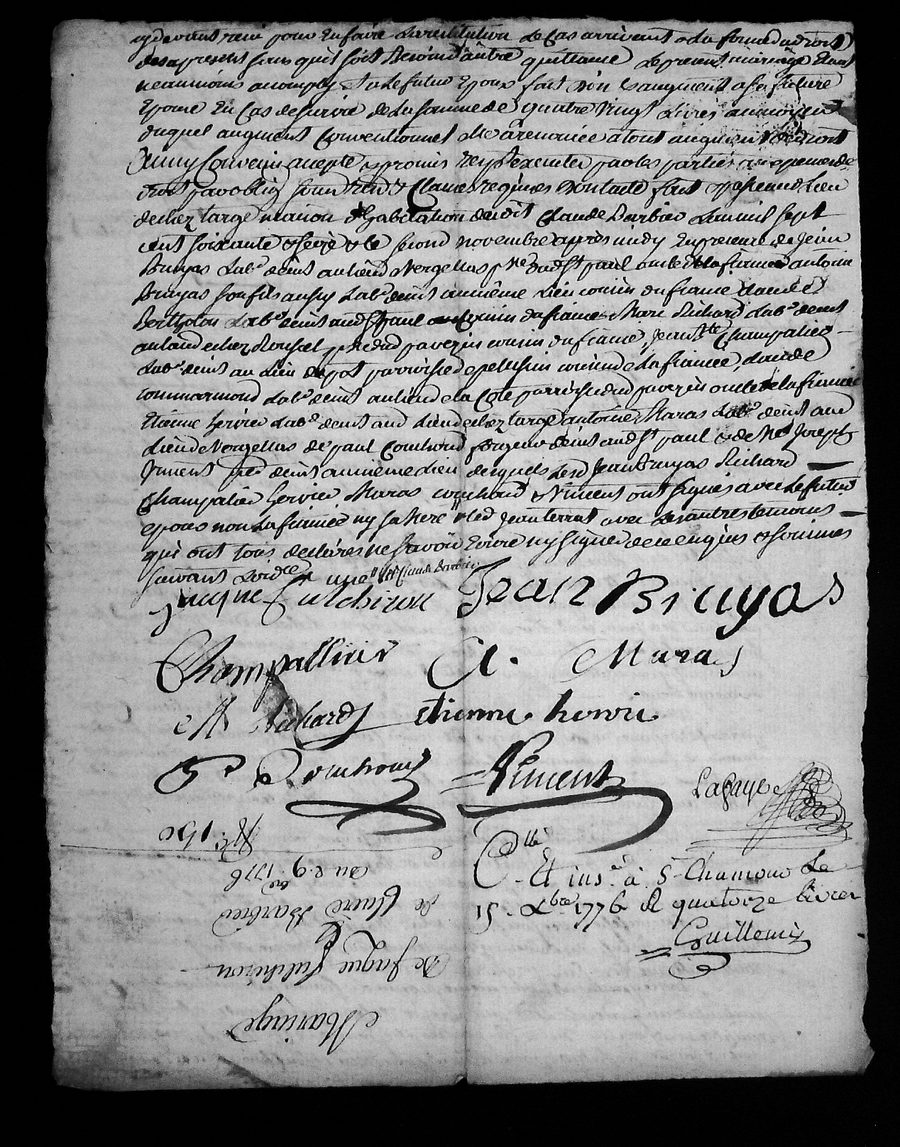 cydevant recu pour En faire La restitution Le Cas arrivant a La forme du droit
des apresent sans quil soit Besoin d'autre quittance Le present mariage Etant
neanmoins accomply Led futur Epoux fait don Et augment a sa future
Epouse En Cas de survie de La somme de quatre vingt Livres au moyen
duquel augment Conventionnel Elle a renoncé a tout augment
Ainsy Convenu accepté et promis Executer par les parties a peine de
par obligaon soumions renons Et Clauses requises dont acte fait Et passé aud Lieu
de chez Large maison d'habitation dudit Claude Barbier L'an mil sept
cent soixante Et seize Et le second novembre apres midy En presence de Jean
Bruyas Labr dem au Lieu de Vergellas psse dud St paul oncle de la fiancée antoine
Bruyas son fils aussy Labr demt au même Lieu cousin du fiancé Claude
Berthola Labr demt aud St paul cousin du fiancé Marc Richard Labr demt
au Lieu de chez Roussel psse dud pavezin cousin du fiancé, Jean Bte Champalier
Labr demt au Lieu de parroisse de pelussin cousin de La fiancée, Claude
commarmond Labr demt au Lieu de la Cote parroisse dud pavezin oncle de la fiancée
Etienne Hervier Labr demt aud Lieu de chez Large antoine Maras Labr demt aud
Lieu de Vergellas de paul Couchoud forgeur demt aud St paul & de Me Joseph
Vincent demt au même Lieu desquels Led Jean Bruyas Richard
Champalier Hervier Maras couchoud & Vincent ont signés avec Le futur
epoux non La fiancée ny sa mere ny led Jean terrat avec Les autres temoins
qui ont tous declarés ne savoir Ecrire ny signer de ce enquis & sommes
suivant L'ordce une Claude Barbier
Jacque Fulchiron Jean Bruyas
Champallier A. Maras
M Richard etienne hervie
P Couchoud Vincent
Lafaye
Cllé
Et insé à St Chamond Le
15. Xbre 1776 R quatorze Livres
Guillemin
Mariage
De Jaque Fulchiron
Et
De Claire Barbier
Du 2. 9bre 1776
No. 150